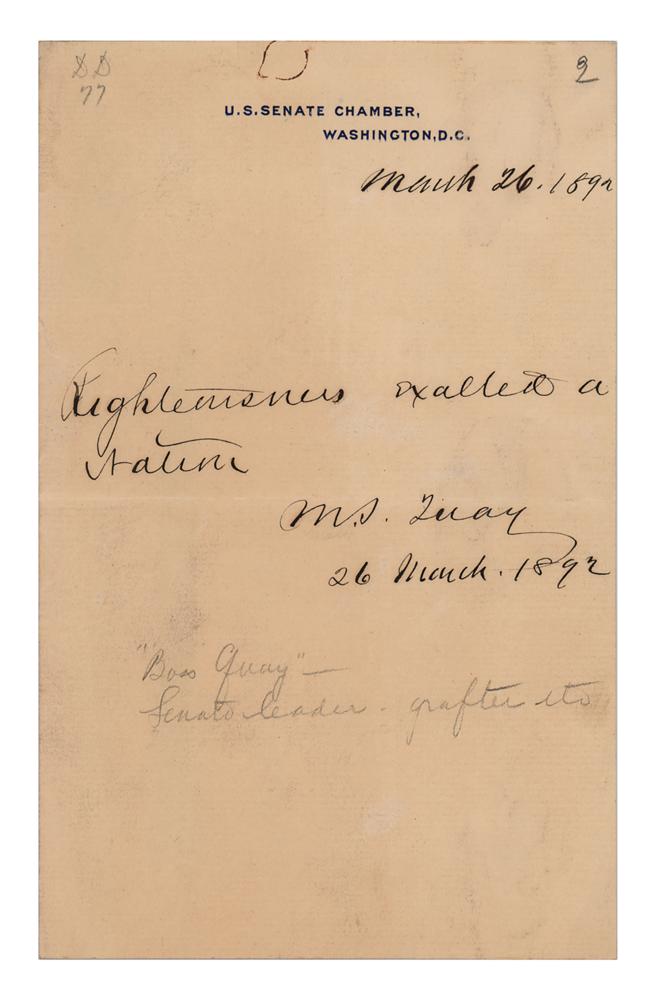 DD
77
2
U.S.SENATE CHAMBER,
WASHINGTON,D.C.
March 26. 1892
Righteousness exalted a
Nation
M.S. Quay
26 March. 1892
"Boss Quay" —
Senate leader - grafter etc